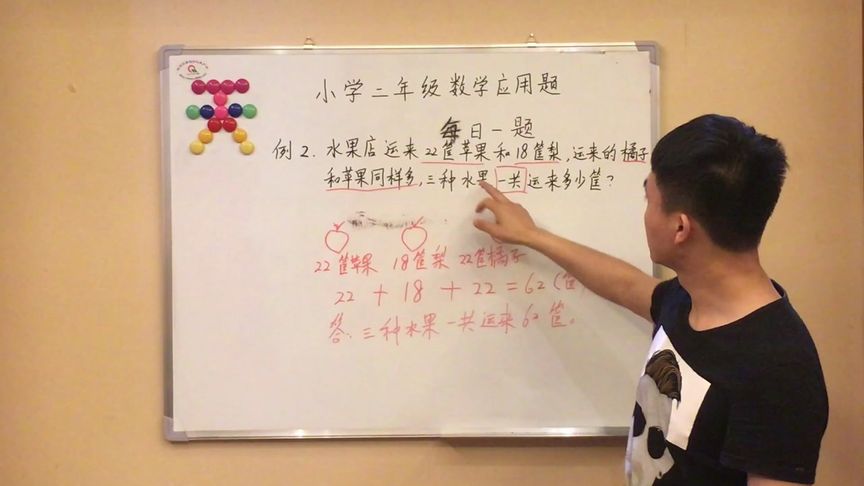 小学二年级数学应用题
每日一题
例2.水果店运来22筐苹果和18筐梨,运来的橘子
和苹果同样多,三种水果一共运来多少筐?
22筐苹果 18筐梨 22筐橘子
22+18+22=62(筐
答:三种水果一共运来62筐。